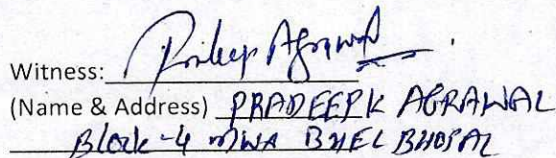 Witness: Pradeep Agrawal
(Name & Address) PRADEEP K AGRAWAL
Block-4 BHEL BHOPAL